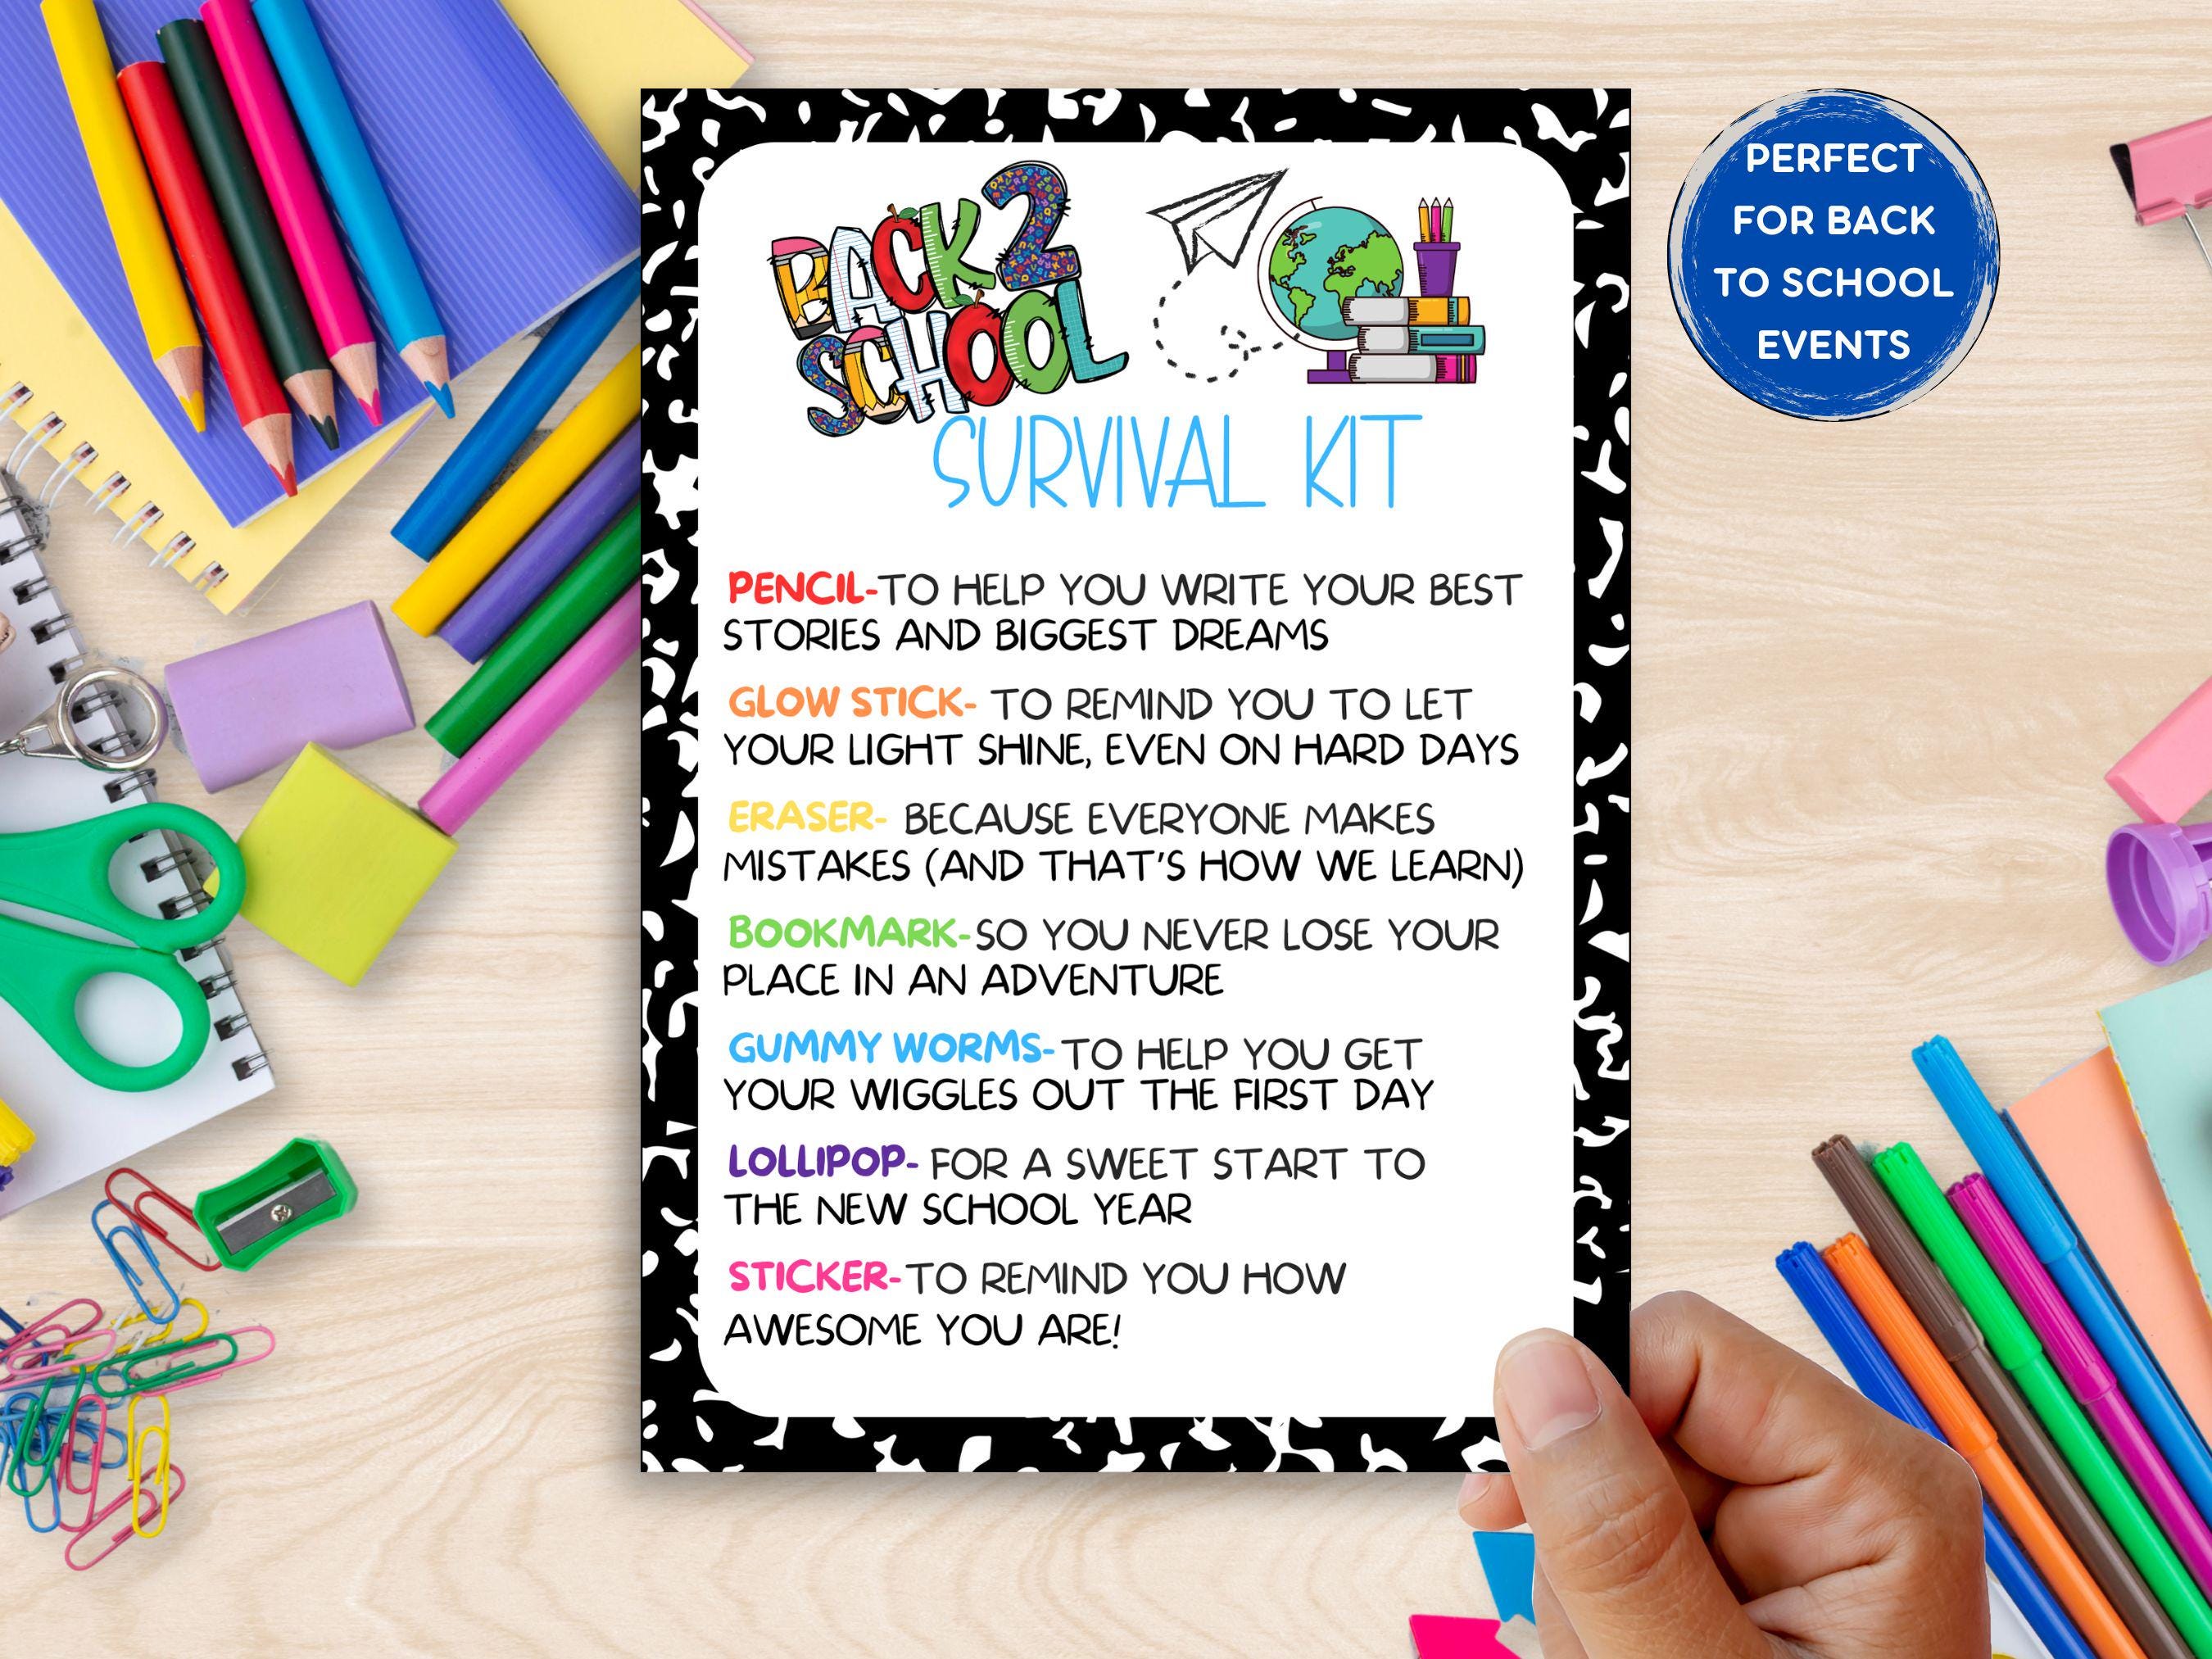 BACK 2
SCHOOL
SURVIVAL KIT
PENCIL-TO HELP YOU WRITE YOUR BEST
STORIES AND BIGGEST DREAMS
GLOW STICK- TO REMIND YOU TO LET
YOUR LIGHT SHINE, EVEN ON HARD DAYS
ERASER- BECAUSE EVERYONE MAKES
MISTAKES (AND THAT'S HOW WE LEARN)
BOOKMARK-SO YOU NEVER LOSE YOUR
PLACE IN AN ADVENTURE
GUMMY WORMS-TO HELP YOU GET
YOUR WIGGLES OUT THE FIRST DAY
LOLLIPOP- FOR A SWEET START TO
THE NEW SCHOOL YEAR
STICKER-TO REMIND YOU HOW
AWESOME YOU ARE!
PERFECT
FOR BACK
TO SCHOOL
EVENTS